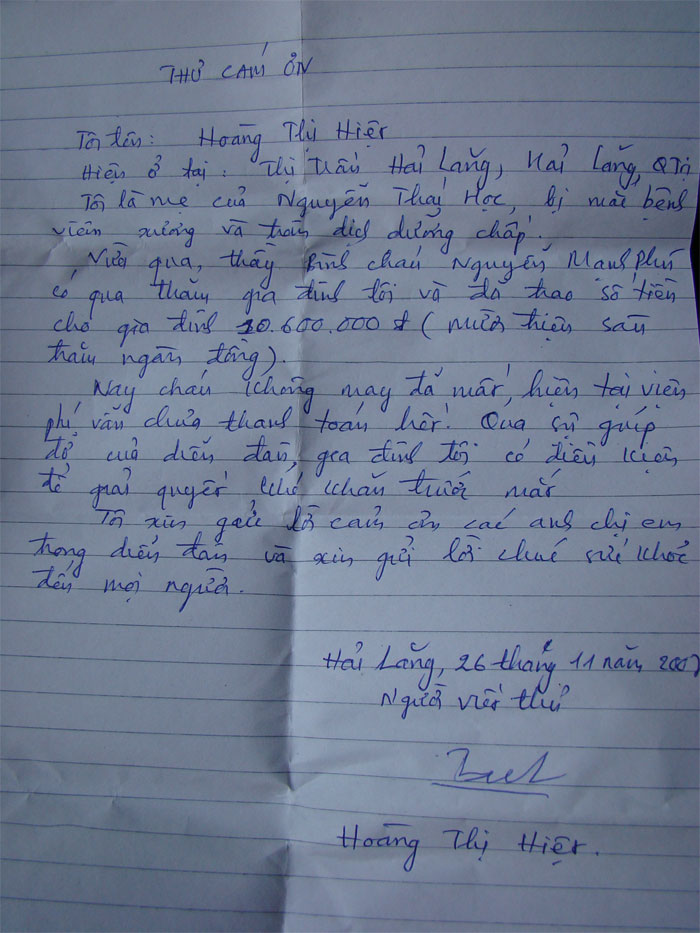 THƯ CÁM ƠN
Tôi tên: Hoàng Thị Hiệt
Hiện ở tại: Thị trấn Hải Lăng, Hải Lăng, QTrị
Tôi là mẹ của Nguyễn Thái Học, bị mắc bệnh
viêm xương và tràn dịch dưỡng chấp.
Vừa qua, thầy Bình cháu Nguyễn Mạnh Phú
có qua thăm gia đình tôi và đã trao số tiền
cho gia đình 10.600.000 đ (mười triệu sáu
trăm ngàn đồng).
Nay cháu không may đã mất, hiện tại viện
phí vẫn chưa thanh toán hết. Qua sự giúp
đỡ của diễn đàn, gia đình tôi có điều kiện
để giải quyết khó khăn trước mắt
Tôi xin gửi lời cảm ơn các anh chị em
trong diễn đàn và xin gửi lời chúc sức khỏe
đến mọi người.
Hải Lăng, 26 tháng 11 năm 2007
Người viết thư
Hoàng Thị Hiệt.